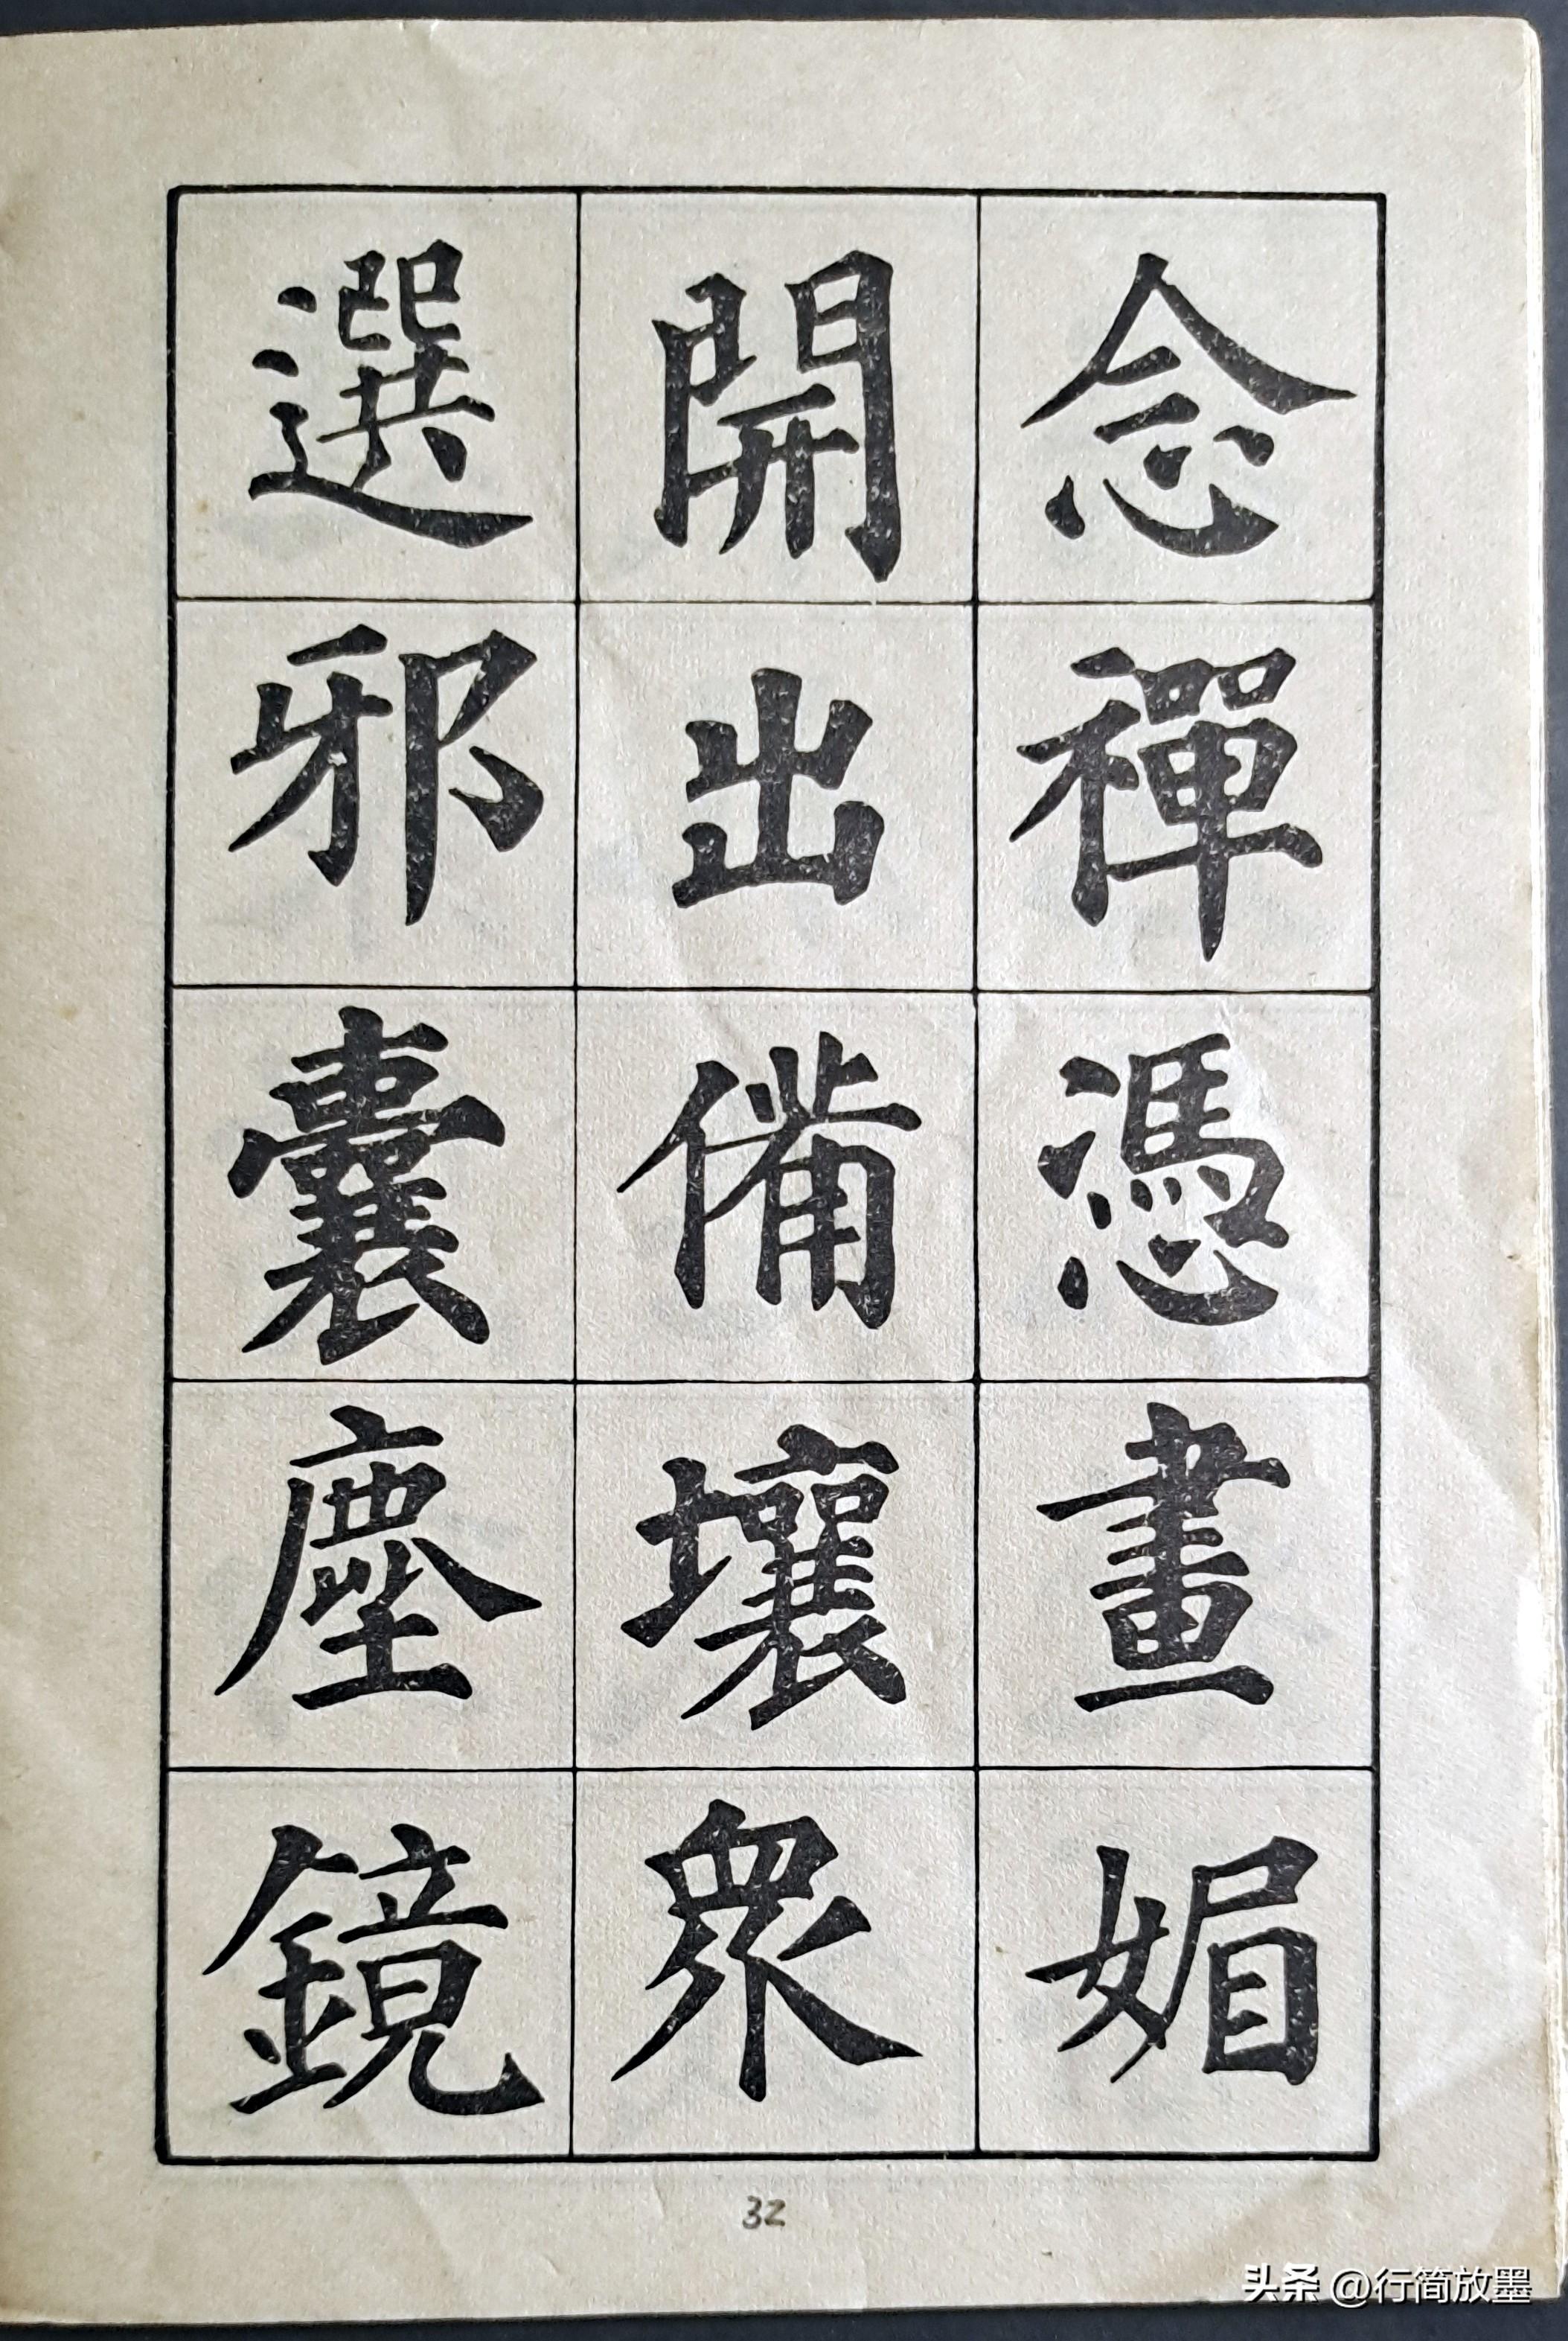 念禪憑畫媚
開出備壤衆
選邪囊塵鏡
32
头条 @行简放墨